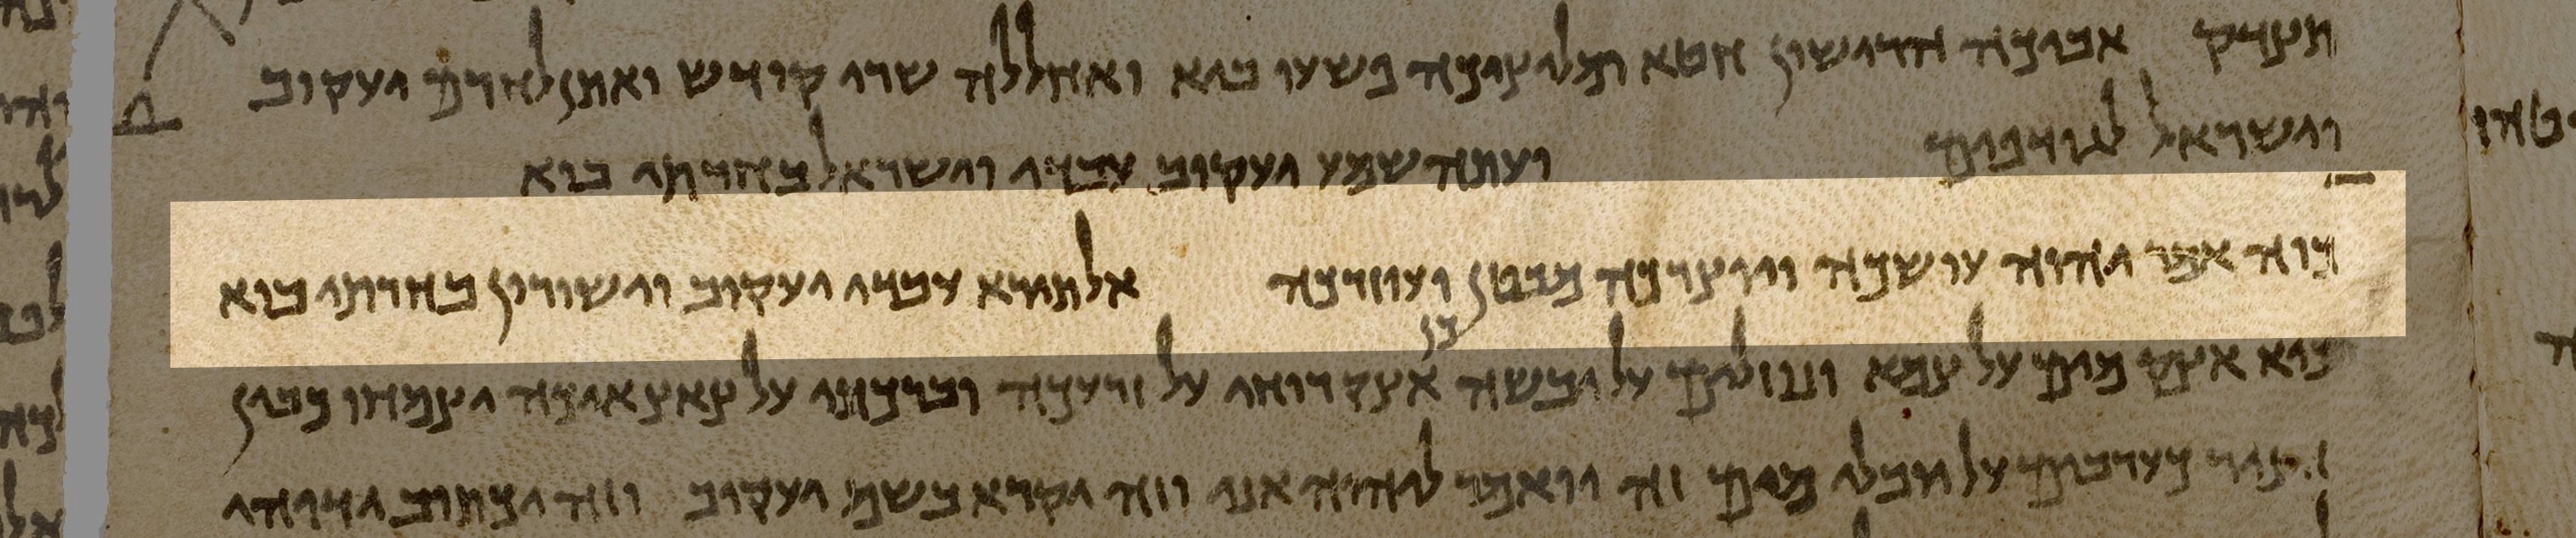 תצדק אביכה הרישון חטא ומליציכה פשעו ביא ואחללה שרי קודש ואתן לחרם יעקוב
וישראל לגודפים ועתה שמע יעקוב עבדי וישראל בחרתי בוא
כוה אמר יהוה עושכה ויוצרכה מבטן ועוזרכה אל תירא עבדי יעקוב וישורון בחרתי בוא
כיא אצק מים על צמא ונוזלים על יבשה כן אצק רוחי על זרעכה וברכתי על צאצאיכה יצמחו כבין
חציר כערבים על יבלי מים זה יואמר ליהוה אני וזה יקרא בשם יעקוב וזה יכתוב